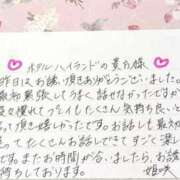 ホテルハイランドの貴方様
昨日はお誘い頂きありがとうございました。
最初緊張してうまく話せなかったですが
段々慣れてっていもたくさん気持ち良いと
って頂き嬉しかったです。お話しも最高
ってたくさんお話もできてすごく楽し
です。またお時間が合いましたら、お誘
待ちしております。
姫咲